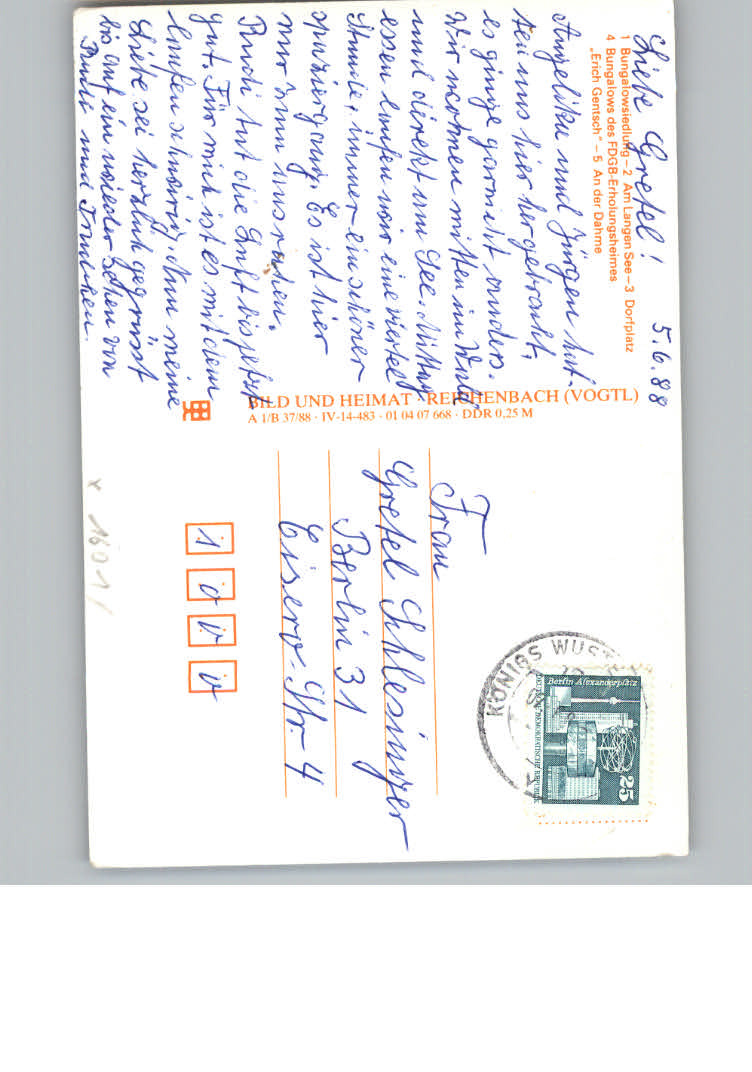 1 Bungalowsiedlung – 2 Am Langen See – 3 Dorfplatz
4 Bungalows des FDGB-Erholungsheimes
„Erich Gentsch" – 5 An der Dahme
5.6.88
Liebe Gretel!
Angelika und Jürgen hat-
ten uns hier her gebracht,
es ginge garnicht anders.
Wir wohnen mitten im Wald
und direkt am See. Mittag
essen laufen wir eine viertel
Stunde, immer ein schöner
spaziergang. Es ist hier
nur zum ausruhen.
Rudi tut die Luft bis jetzt
gut. Für mich ist es mit dem
laufen schwierig. Nun meine
Liebe sei herzlich gegrüsst
bis auf ein wieder sehen von
Rudi und
BILD UND HEIMAT · REICHENBACH (VOGTL)
A 1/B 37/88 · IV-14-483 · 01 04 07 668 · DDR 0,25 M
KÖNIGS WUST
Berlin Alexanderplatz
DEUTSCHE DEMOKRATISCHE REPUBLIK
25
Frau
Gretel Schlesinger
Berlin 31
Eisero-Str. 4
1000
x 1601/